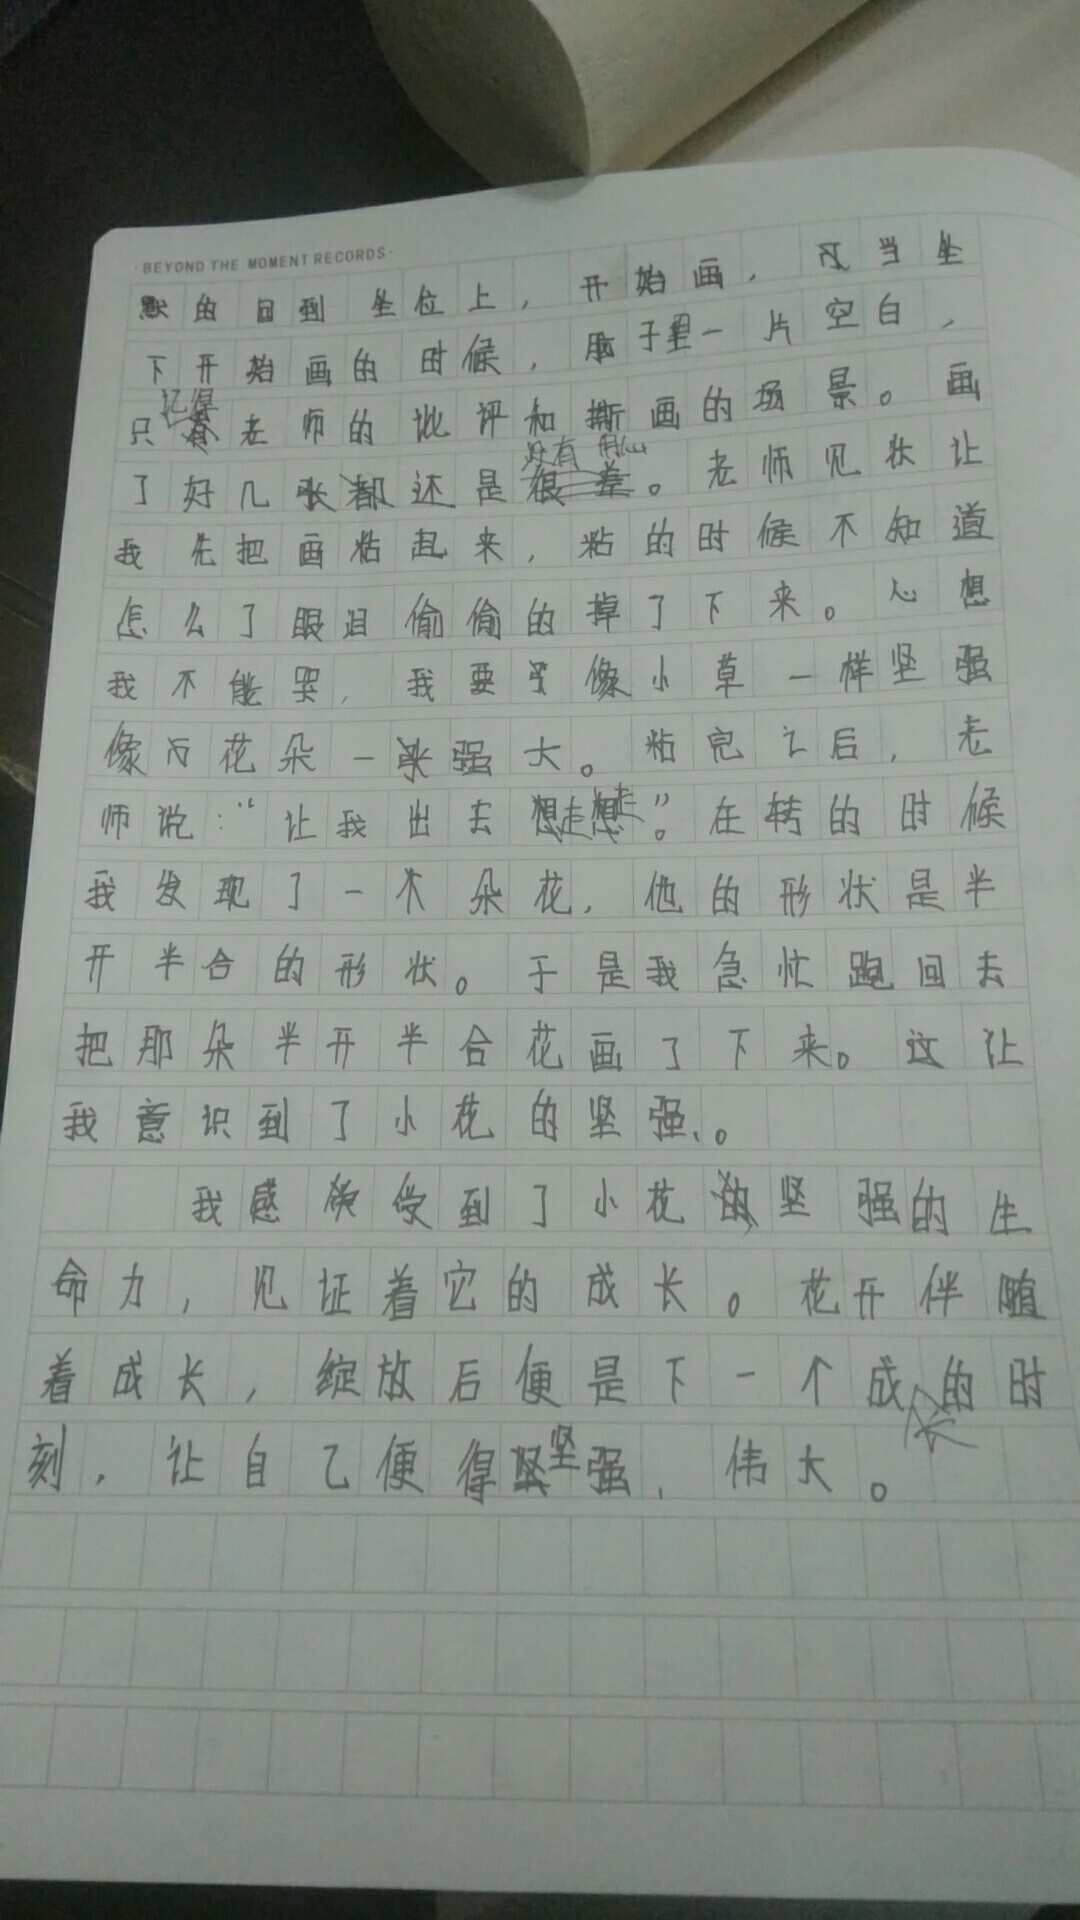 ·BEYOND THE MOMENT RECORDS·
默的回到坐位上，开始画，当坐
下开始画的时候，脑子里一片空白，
只记得老师的批评和撕画的场景。画
了好几张都还是没有用心。老师见状让
我先把画粘起来，粘的时候不知道
怎么了眼泪偷偷的掉了下来。心想
我不能哭，我要像小草一样坚强
像花朵一张强大。粘完之后，老
师说：“让我出去走走”。在转的时候
我发现了一朵花，他的形状是半
开半合的形状。于是我急忙跑回去
把那朵半开半合花画了下来。这让
我意识到了小花的坚强。
我感受到了小花坚强的生
命力，见证着它的成长。花开伴随
着成长，绽放后便是下一个成长的时
刻，让自己便得坚强，伟大。